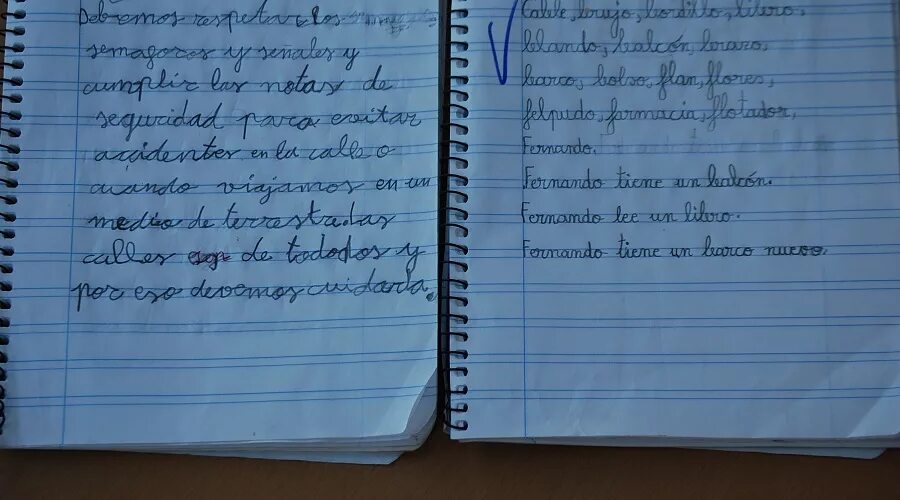 Debemos respetar los
semagoros y señales y
cumplir las notas de
seguridad para evitar
accidentes en la calle o
cuando viajamos en un
medio de terrestre. Las
calles de tododos y
por eso devemos cuidarla.
Cable, brujo, bordillo, libro,
blando, balcón, brazo,
barco, bolso, flan, flores,
felpudo, farmacia, flotador,
Fernando.
Fernando tiene un balcón.
Fernando lee un libro.
Fernando tiene un barco nuevo.